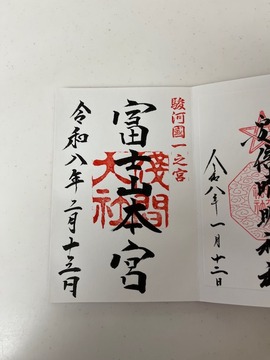 安倍晴明神社
令和八年一月十二日
駿河國一之宮
富士山本宮
淺間大社
令和八年二月十三日